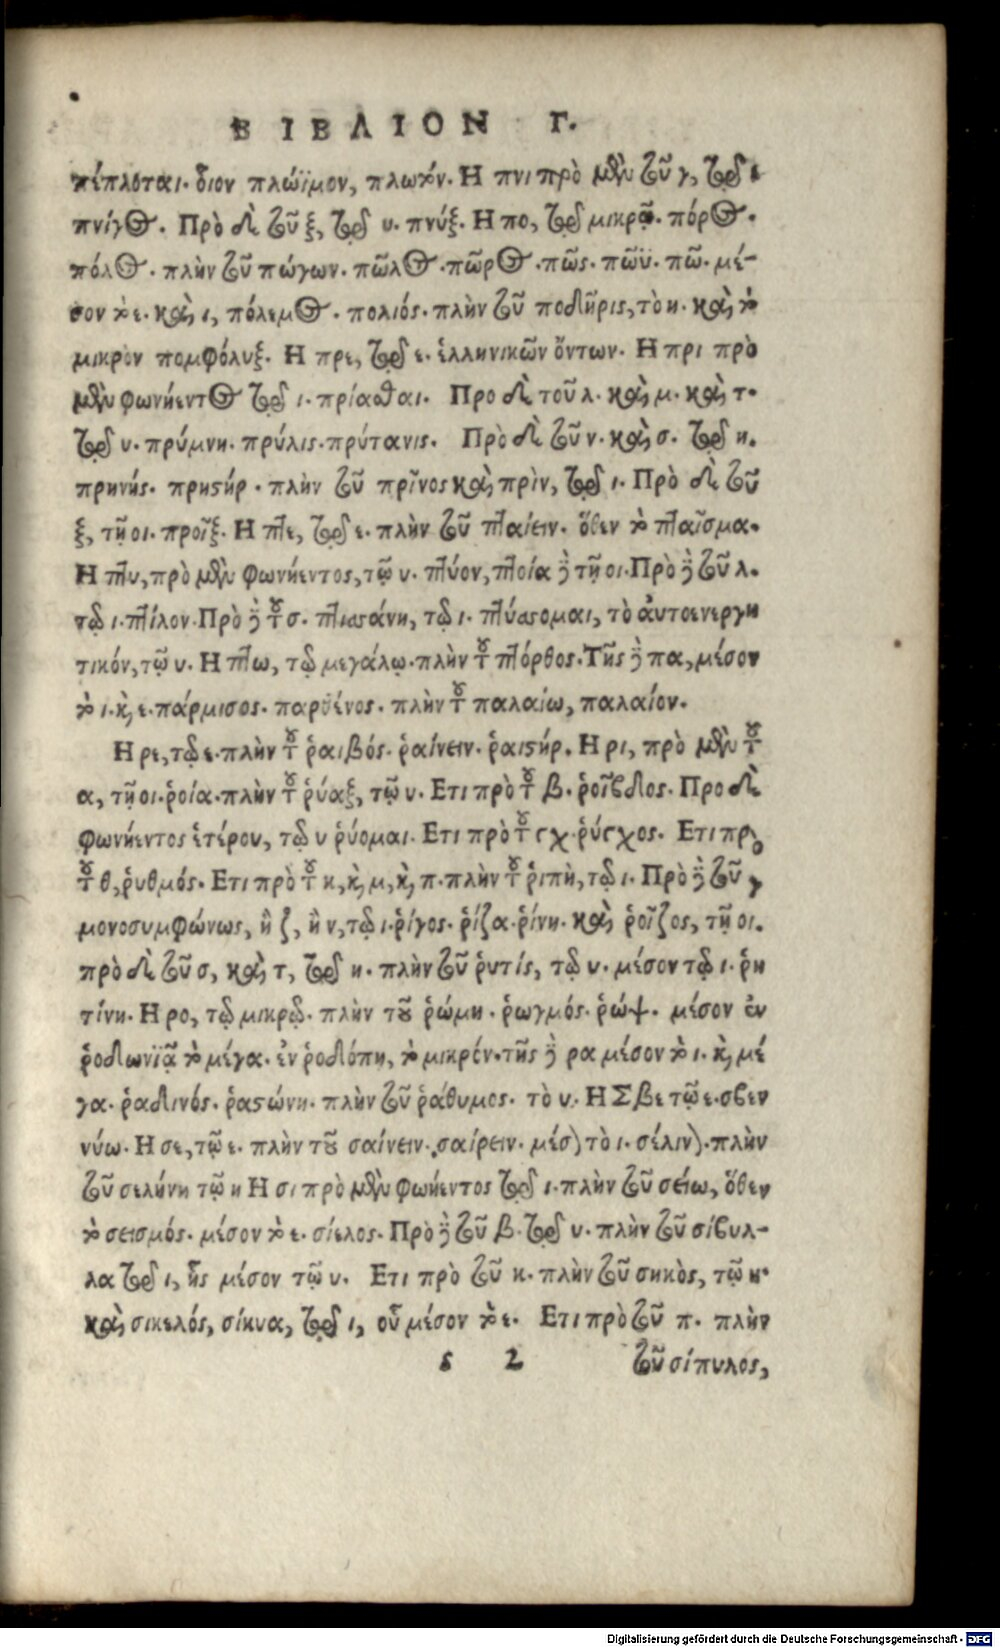 ΒΙΒΛΙΟΝ Γ.
πέπλοται. ὅιον πλώϊμον, πλωτόν. Η πνι πρὸ μὲν τοῦ γ, τῷ ι
πνίγος. Πρὸ δὲ τοῦ ξ, τῷ υ. πνύξ. Η πο, τῷ μικρῷ. πόρος.
πόλος. πλὴν τοῦ πώγων. πῶλος. πῶρος. πῶς. πῶϋ. πῶ. μέ-
σον τὸ ε. καὶ ι, πόλεμος. πολιός. πλὴν τοῦ ποδῆρις, τὸ η. καὶ τὸ
μικρὸν πομφόλυξ. Η πρε, τῷ ε. ἑλληνικῶν ὄντων. Η πρι πρὸ
μὲν φωνήεντος τῷ ι. πρίαθαι. Προ δὲ τοῦ λ. καὶ μ. καὶ τ.
τῷ υ. πρύμνη. πρύλις. πρύτανις. Πρὸ δὲ τοῦ ν. καὶ σ. τῷ η.
πρηνής. πρηστήρ. πλὴν τοῦ πρῖνος καὶ πρὶν, τῷ ι. Πρὸ δὲ τοῦ
ξ, τῇ οι. προῖξ. Η πτε, τῷ ε. πλὴν τοῦ πταίειν. ὅθεν τὸ πταῖσμα.
Η πτυ, πρὸ μὲν φωνήεντος, τῷ υ. πτύον, πτοία δὲ τῇ οι. Πρὸ δὲ τοῦ λ.
τῷ ι. πτίλον. Πρὸ δὲ τοῦ σ. πτισάνη, τῷ ι. πτύασομαι, τὸ αὐτοενεργη
τικόν, τῷ υ. Η πτω, τῷ μεγάλῳ. πλὴν τοῦ πτόρθος. Τῆς δὲ πα, μέσον
τὸ ι. καὶ ε. πάρμισος. παρθένος. πλὴν τοῦ παλαίω, παλαίον.
Η ρε, τῷ ε. πλὴν τοῦ ῥαιβός. ῥαίνειν. ῥαιστήρ. Η ρι, πρὸ μὲν τοῦ
α, τῇ οι. ῥοία. πλὴν τοῦ ῥύαξ, τῷ υ. Ετι πρὸ τοῦ β. ῥοῖβδος. Προ δὲ
φωνήεντος ἑτέρου, τῷ υ ῥύομαι. Ετι πρὸ τοῦ γχ. ῥύγχος. Ετι προ
τοῦ θ, ῥυθμός. Ετι πρὸ τοῦ κ, καὶ μ, καὶ π. πλὴν τοῦ ῥιπὴ, τῷ ι. Πρὸ δὲ τοῦ γ
μονοσυμφώνως, ἢ ζ, ἢ ν, τῷ ι. ῥίγος. ῥίζα. ῥίνη. καὶ ῥοῖζος, τῇ οι.
πρὸ δὲ τοῦ σ, καὶ τ, τῷ η. πλὴν τοῦ ῥυτίς, τῷ υ. μέσον τῷ ι. ῥη
τίνη. Η ρο, τῷ μικρῷ. πλὴν τοῦ ῥώμη. ῥωγμός. ῥώψ. μέσον ἐν
ῥοδωνϊᾷ τὸ μέγα. ἐν ῥοδόπη, τὸ μικρόν. τῆς δὲ ρα μέσον τὸ ι. καὶ μέ
γα. ῥαδινός. ῥαστώνη. πλὴν τοῦ ῥάθυμος. τὸ υ. Η Σβε τῷ ε. σβεν
νύω. Η σε, τῷ ε. πλὴν τοῦ σαίνειν. σαίρειν. μέσον τὸ ι. σέλινον. πλὴν
τοῦ σελήνη τῷ η Η σι πρὸ μὲν φωνήεντος τῷ ι. πλὴν τοῦ σείω, ὅθεν
τὸ σεισμός. μέσον τὸ ε. σίελος. Πρὸ δὲ τοῦ β. τῷ υ. πλὴν τοῦ σίβυλ-
λα τῷ ι, ἧς μέσον τῷ υ. Ετι πρὸ τοῦ κ. πλὴν τοῦ σηκὸς, τῷ η.
καὶ σικελός, σίκυα, τῷ ι, οὗ μέσον τὸ ε. Ετι πρὸ τοῦ π. πλὴν
ς 2 τοῦ σίπυλος,
Digitalisierung gefördert durch die Deutsche Forschungsgemeinschaft - DFG